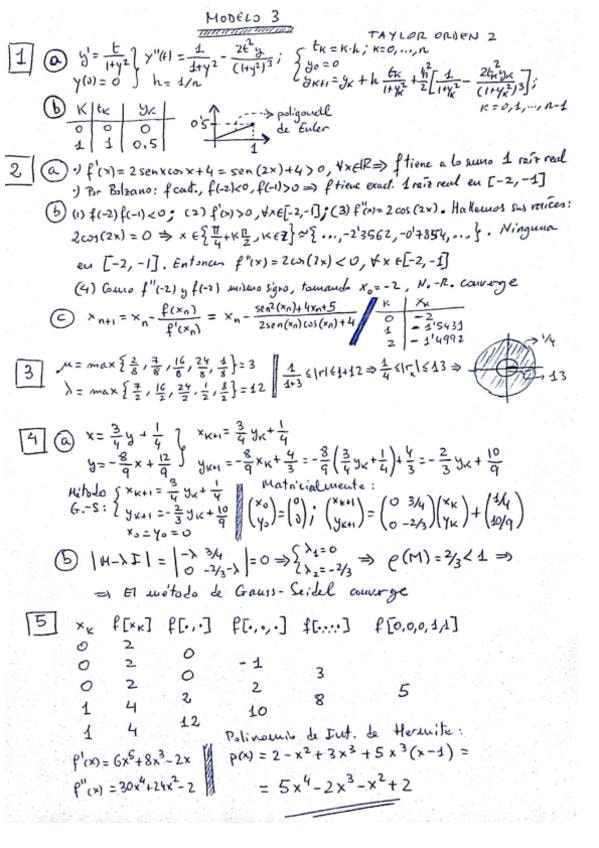 MODELO 3
TAYLOR ORDEN 2
1 (a) y' = t/(1+y²) ; y(0) = 0 } y''(t) = 1/(1+y²) - 2t²y/(1+y²)³ ; h = 1/n { t_K = K·h ; K=0,...,n
y_0 = 0
y_{K+1} = y_K + h t_K/(1+y_K²) + h²/2 [1/(1+y_K²) - 2t_K² y_K/(1+y_K²)³] ;
K = 0,1,...,n-1
(b) K | t_K | y_K
0 | 0 | 0
1 | 1 | 0.5
0'5
1
→ poligonal de Euler
2 (a) ·) f'(x) = 2 sen x cos x + 4 = sen(2x) + 4 > 0, ∀x∈ℝ ⇒ f tiene a lo sumo 1 raíz real
·) Por Bolzano: f cont., f(-2)<0, f(-1)>0 ⇒ f tiene exact. 1 raíz real en [-2,-1]
(b) (1) f(-2) f(-1) < 0 ; (2) f'(x) > 0, ∀x∈[-2,-1] ; (3) f''(x) = 2 cos(2x). Hallemos sus raíces:
2cos(2x) = 0 ⇒ x ∈ {π/4 + Kπ/2, K∈Z} ≃ {..., -2'3562, -0'7854, ...}. Ninguna
en [-2,-1]. Entonces f''(x) = 2cos(2x) < 0, ∀x∈[-2,-1]
(4) Como f''(-2) y f(-2) mismo signo, tomando x_0 = -2, N.-R. converge
(c) x_{n+1} = x_n - f(x_n)/f'(x_n) = x_n - (sen²(x_n) + 4x_n + 5)/(2 sen(x_n) cos(x_n) + 4)
K | x_K
0 | -2
1 | -1'5431
2 | -1'4992
3 μ = max {2/8, 7/8, 16/8, 24/8, 1/8} = 3
λ = max {7/2, 16/2, 24/2, 1/2, 8/2} = 12
1/(1+3) ≤ |r| ≤ 1+12 ⇒ 1/4 ≤ |r_k| ≤ 13 ⇒
1/4
13
4 (a) x = 3/4 y + 1/4
y = -8/9 x + 12/9 } x_{K+1} = 3/4 y_K + 1/4
y_{K+1} = -8/9 x_K + 4/3 = -8/9 (3/4 y_K + 1/4) + 4/3 = -2/3 y_K + 10/9
Método G.-S: { x_{K+1} = 3/4 y_K + 1/4
y_{K+1} = -2/3 y_K + 10/9
x_0 = y_0 = 0
Matricialmente:
(x_0 y_0) = (0 0) ; (x_{K+1} y_{K+1}) = (0 3/4 0 -2/3) (x_K y_K) + (1/4 10/9)
(b) |M-λI| = |-λ 3/4 0 -2/3-λ| = 0 ⇒ { λ_1 = 0 λ_2 = -2/3 ⇒ ρ(M) = 2/3 < 1 ⇒
⇒ El método de Gauss-Seidel converge
5 x_K f[x_K] f[·,·] f[·,·,·] f[·,·,·,·] f[0,0,0,1,1]
0 2
0
0 2 -1
0 3
0 2 2 5
2 8
1 4 10
12
1 4
f'(x) = 6x⁵ + 8x³ - 2x
f''(x) = 30x⁴ + 24x² - 2
Polinomio de Int. de Hermite:
p(x) = 2 - x² + 3x³ + 5x³(x-1) =
= 5x⁴ - 2x³ - x² + 2